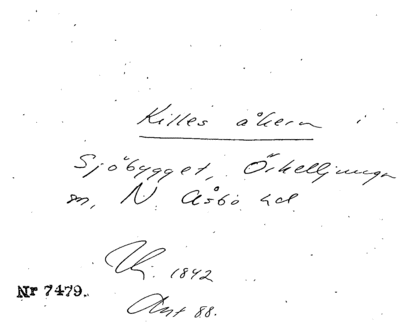 Killes åkern i
Sjöbygget, Örkelljunga
sn, N. Åsbo hd
Nr 7479.
1842
Ant 88.